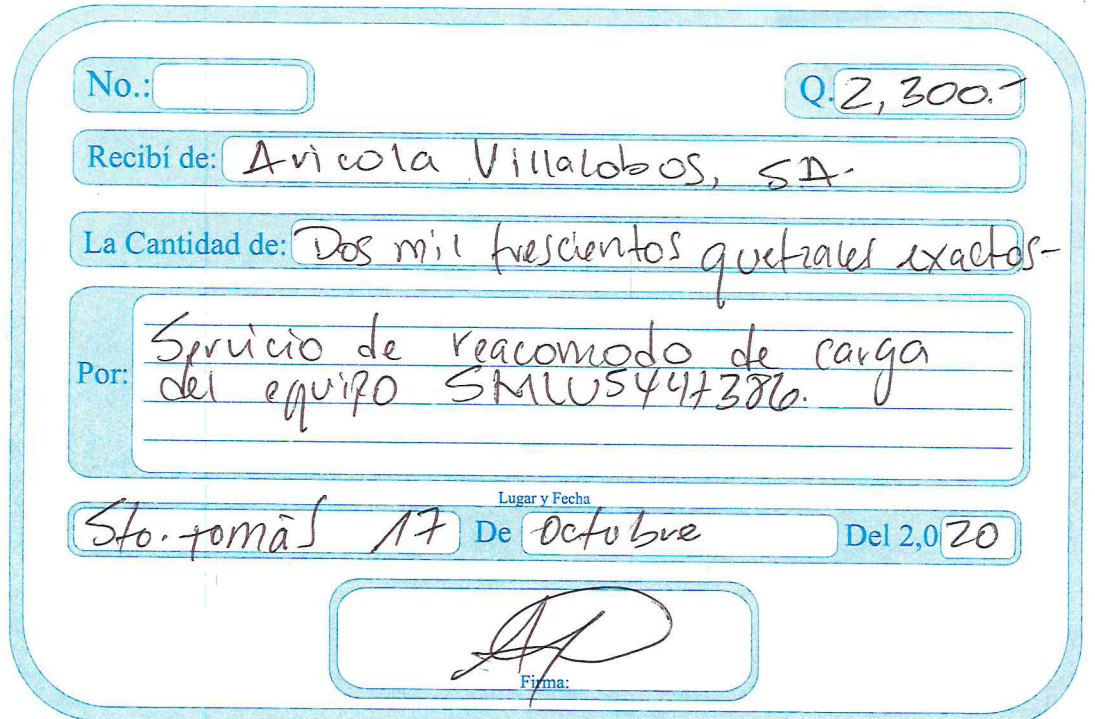 No.:
Q. 2,300.-
Recibí de: Avicola Villalobos, SA.
La Cantidad de: Dos mil trescientos quetzales exactos-
Por: Servicio de reacomodo de carga
del equipo SMLU5447386.
Lugar y Fecha
Sto. tomás 17 De Octubre Del 2,020
Firma: